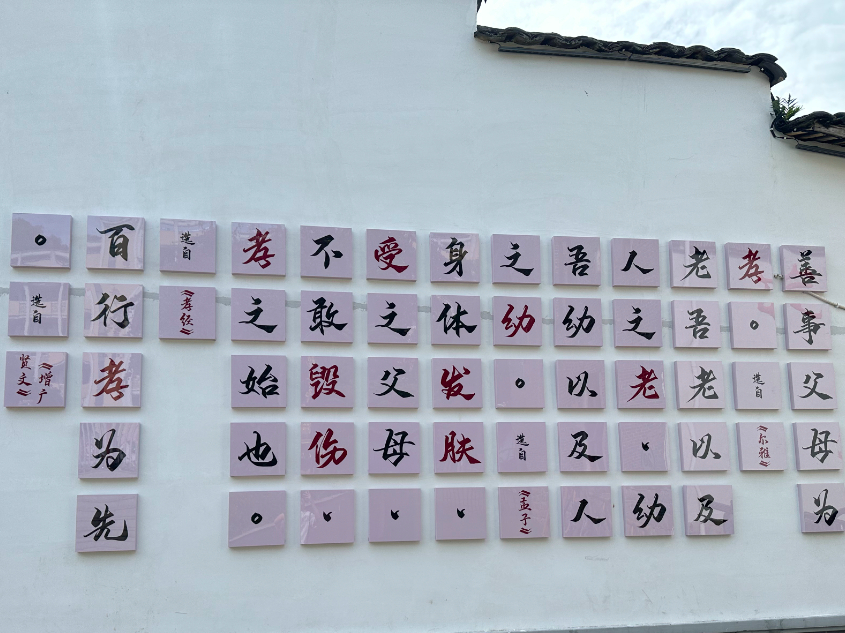 善事父母为
孝。选自《尔雅》
老吾老以及
人之老，幼
吾幼以及人
之幼。选自《孟子》
身体发肤，
受之父母，
不敢毁伤，
孝之始也。
选自《孝经》
百行孝为先
。选自《增广贤文》